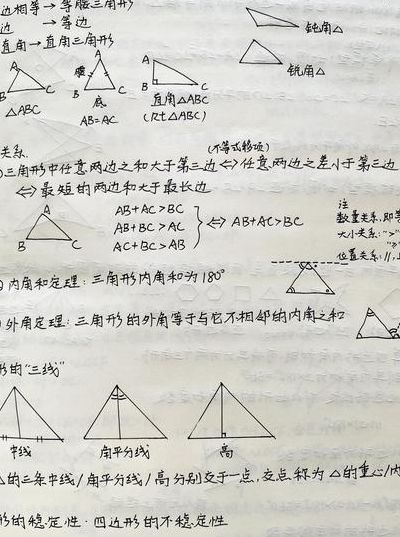 边相等→等腰三角形
边 → 等边
直角→直角三角形
钝角△
锐角△
A
B C
△ABC
A
腰
B 底 C
AB=AC
A
B C
直角△ABC
(Rt△ABC)
关系.
(不等式移项)
三角形中任意两边之和大于第三边⇔任意两边之差小于第三边
⇔最短的两边和大于最长边
A
B C
AB+AC>BC
AB+BC>AC
AC+BC>AB
⇔AB+AC>BC
注
数量关系,即等
大小关系:">"
位置关系://,⊥
内角和定理:三角形内角和为180°
外角定理:三角形的外角等于与它不相邻的内角之和
形的"三线"
中线 角平分线 高
△的三条中线/角平分线/高分别交于一点,交点称为△的重心/内
形的稳定性.四边形的不稳定性